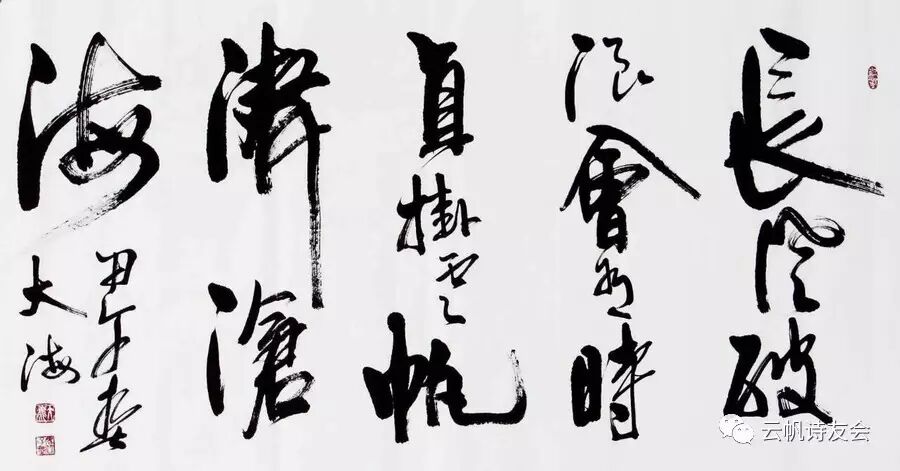 長風破
浪會有時
直掛雲帆
濟滄
海
甲午春
大海
云帆诗友会